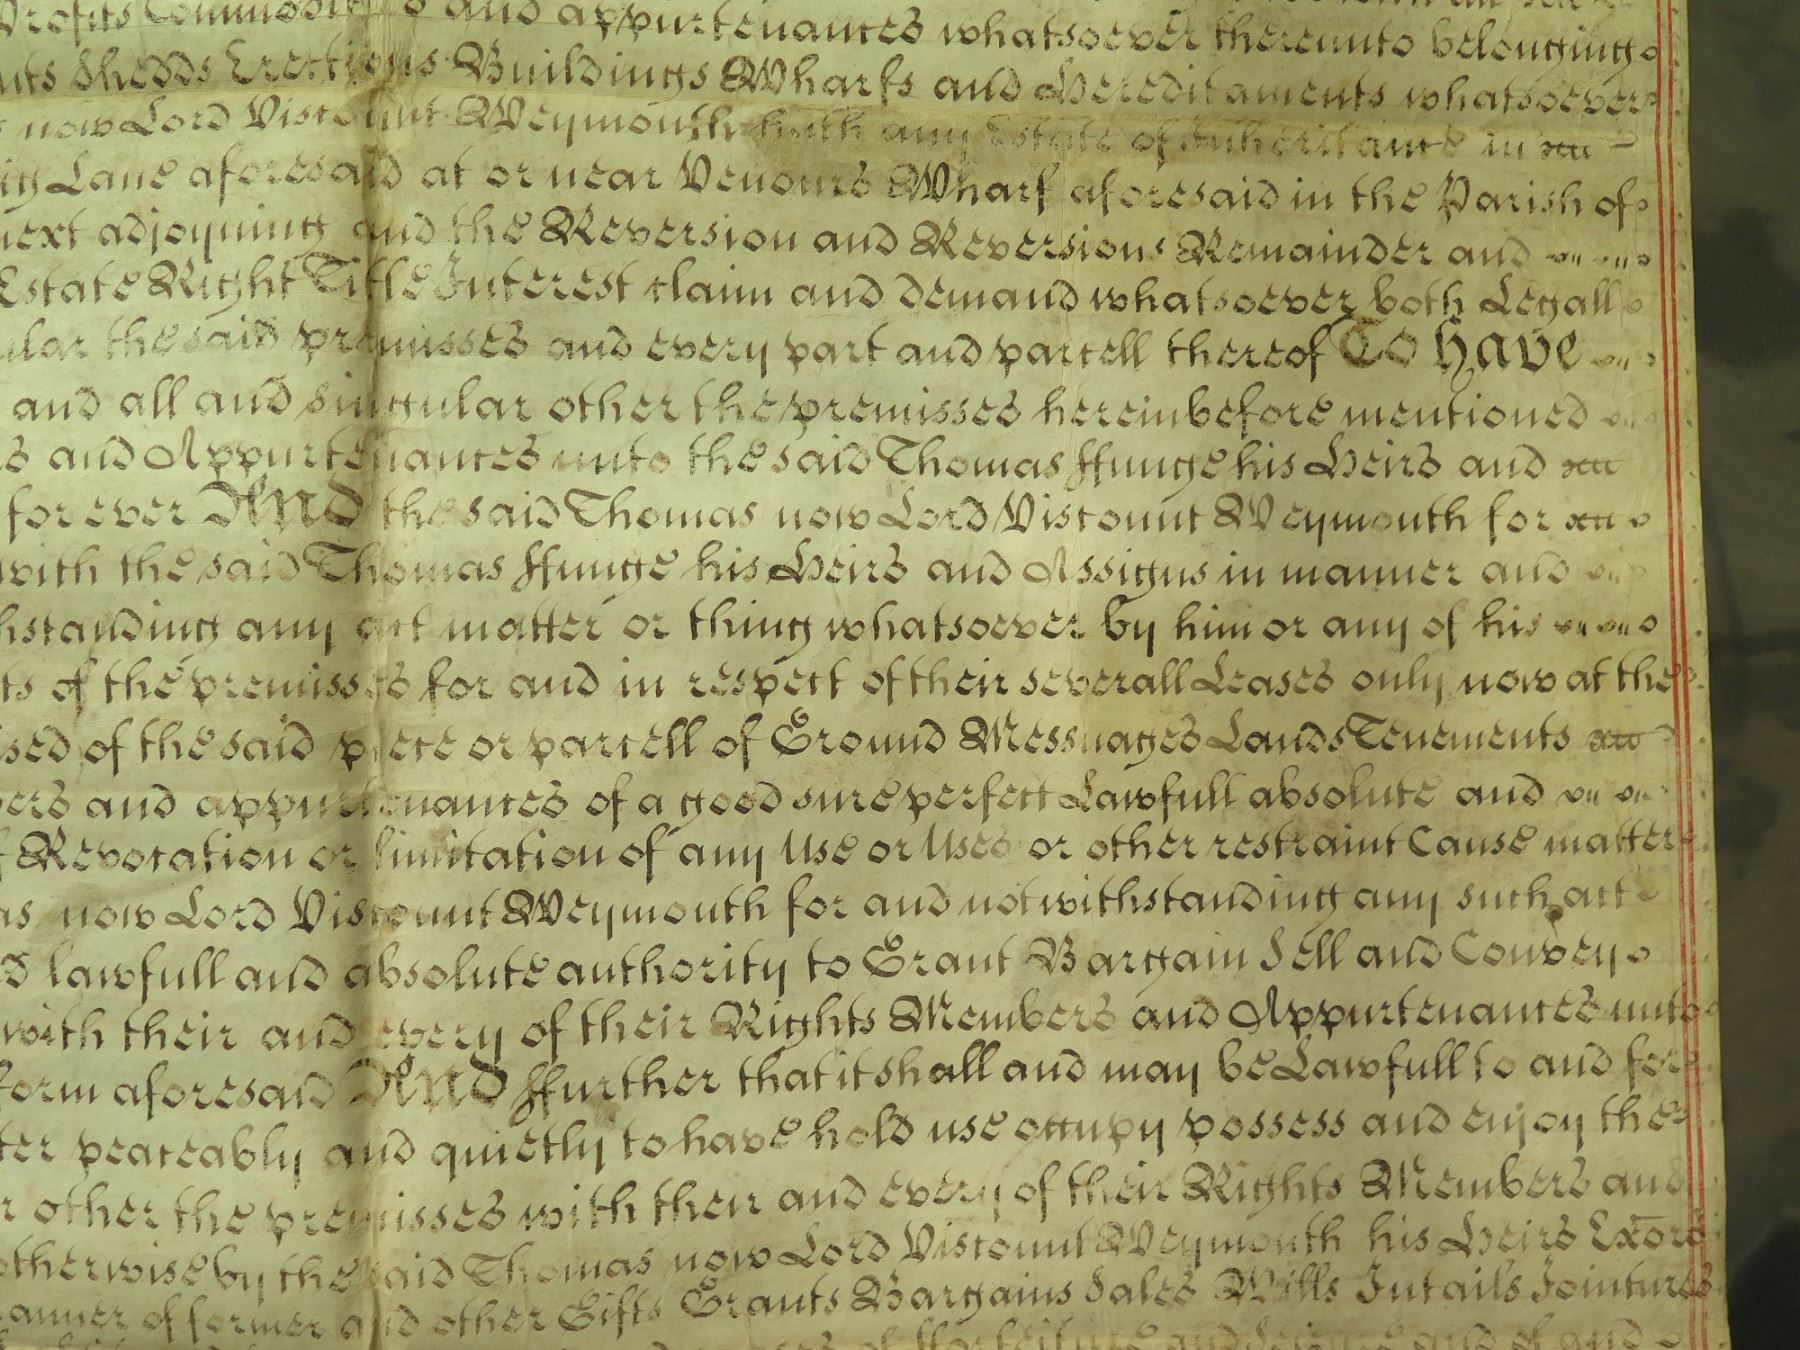 Profits Commodities and appurtenances whatsoever thereunto belonging
Shedds Erections Buildings Wharfs and Hereditaments whatsoever
now Lord Viscount Weymouth hath any Estate of Inheritance in
Lane aforesaid at or near Venours Wharf aforesaid in the Parish of
next adjoyning and the Reversion and Reversions Remainder and
Estate Right Title Interest claim and demand whatsoever both Legall
the said premisses and every part and parcell thereof To have
and all and singular other the premisses hereinbefore mentioned
and Appurtenances unto the said Thomas ffunge his Heirs and
for ever And the said Thomas now Lord Viscount Weymouth for
with the said Thomas ffunge his Heirs and Assigns in manner and
any act matter or thing whatsoever by him or any of his
of the premisses for and in respect of their severall Leases only now at the
of the said piece or parcell of Ground Messuages Lands Tenements
and appurtenances of a good sure perfect Lawfull absolute and
Revocation or limitation of any Use or Uses or other restraint Cause matter
now Lord Viscount Weymouth for and notwithstanding any such act
lawfull and absolute authority to Grant Bargain Sell and Convey
with their and every of their Rights Members and Appurtenances unto
form aforesaid And ffurther that it shall and may be Lawfull to and for
peaceably and quietly to have hold use occupy possess and enjoy the
other the premisses with their and every of their Rights Members and
otherwise by the said Thomas now Lord Viscount Weymouth his Heirs Exors
of former and other Gifts Grants Bargains Sales Wills Intails Jointures